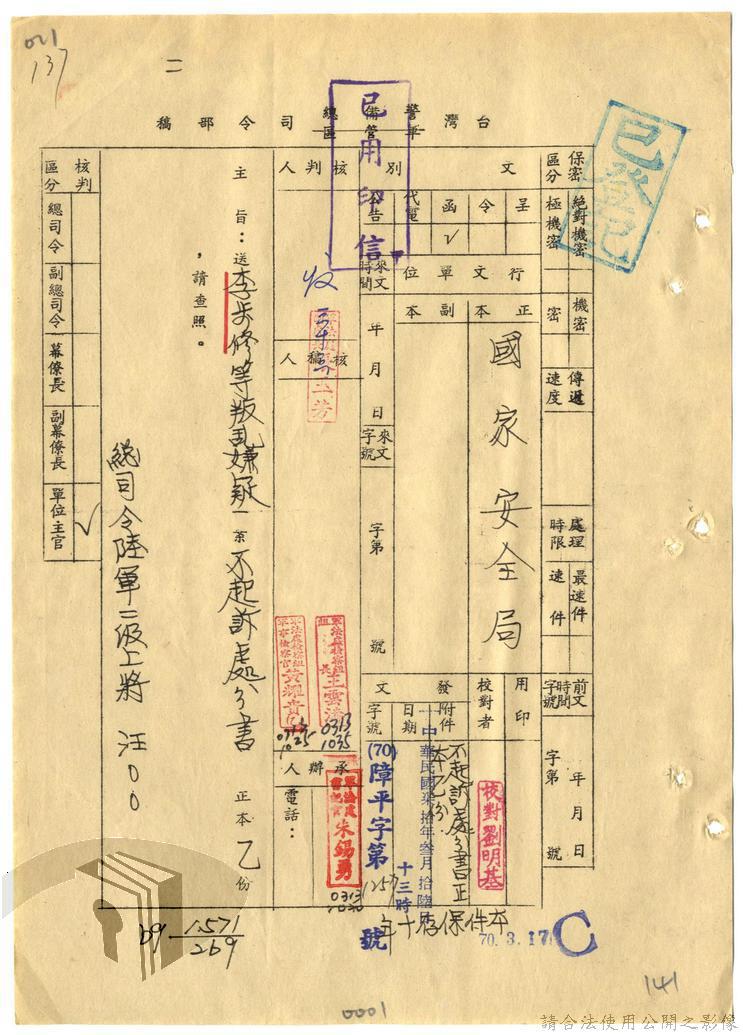 021
137
二
台灣警備總司令部稿
軍管區
已用印信
已登記
保密區分
絕對機密
極機密
機密
密
傳遞速度
處理時限
最速件
速件
前文時間字號
年月日
字第 號
文別
呈
令
函
代電
公告
√
行文單位
正本
副本
國家安全局
來文時間
年月日
來文字號
字第 號
用印
校對者
校對劉明基
發文
附件
不起訴處分書正本乙份
日期
中華民國柒拾年叁月拾陸
十三時
字號
(70)障平字第1257號
本件保存十年
70.3.17
C
核判人
核稿人
軍法處檢察組組長王雲濤
0313
1035
軍法處檢察組軍事檢察官黃耀貴
1025
承辦人
朱錫勇
0313
1030
電話：
主旨：送李步修等叛乱嫌疑一案不起訴處分書正本乙份
，請查照。
總司令陸軍二級上將 汪○○
核判區分
總司令
副總司令
幕僚長
副幕僚長
單位主官
√
1571
269
0001
141
請合法使用公開之影像